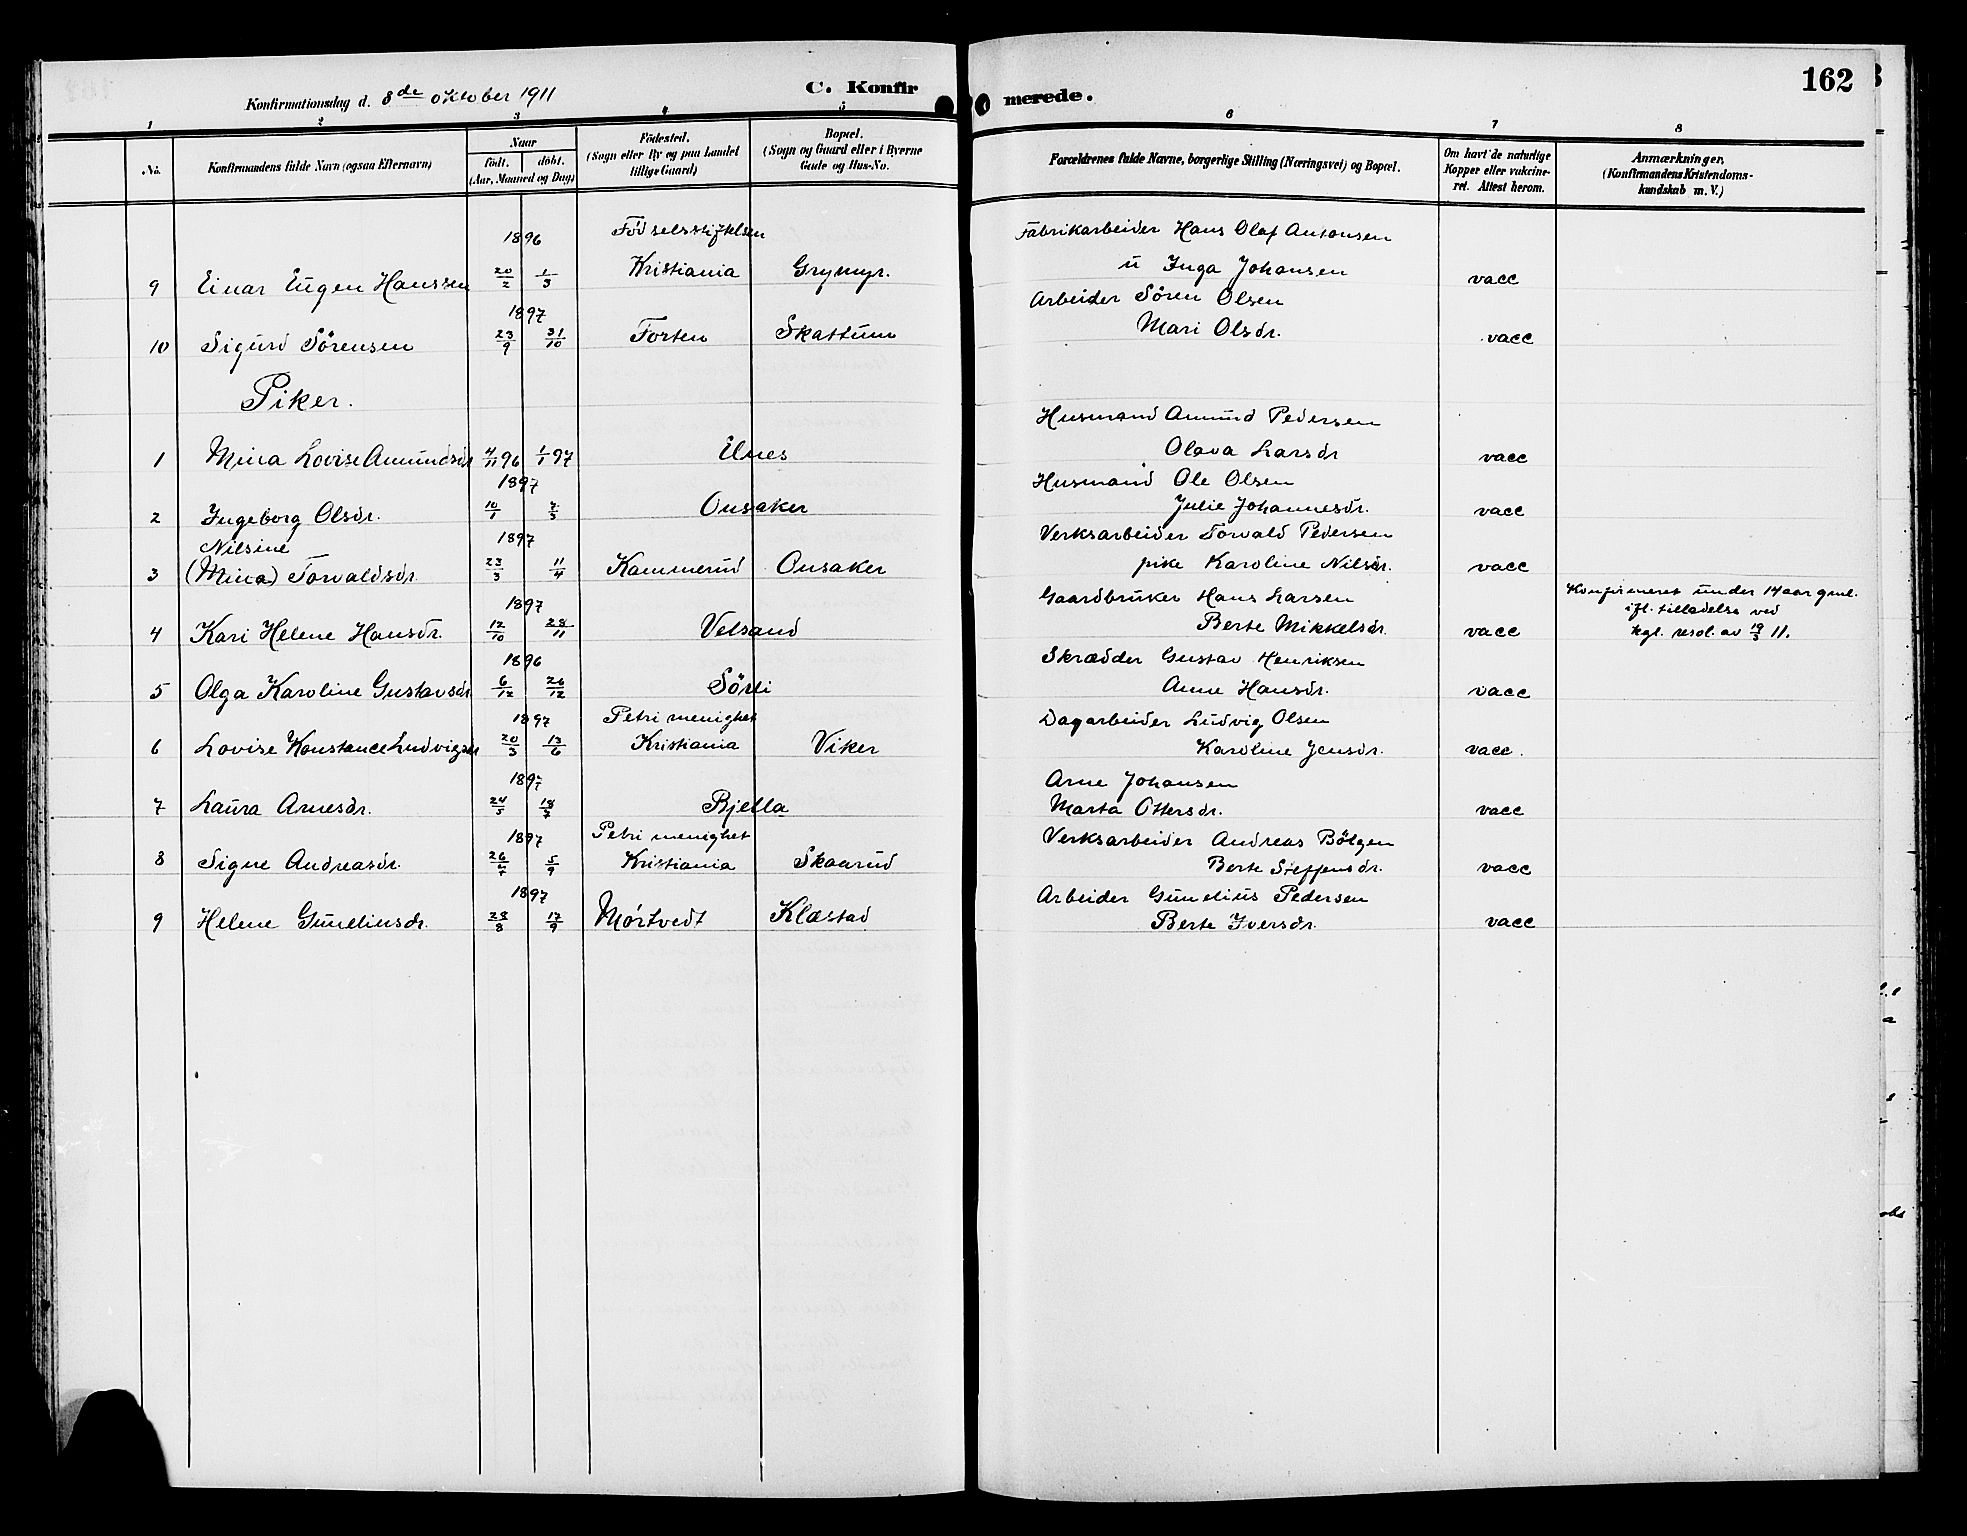 162
Konfirmationsdag d. 8de oktober 1911 C. Konfirmerede.
1 2 3 4 5 6 7 8
No. Konfirmandens fulde Navn (ogsaa Efternavn) Naar födt. döbt. (Aar, Maaned og Dag) Födested. (Sogn eller By og paa Landet tillige Gaard) Bopæl. (Sogn og Gaard eller i Byerne Gade og Hus-No. Forældrenes fulde Navne, borgerlige Stilling (Næringsvei) og Bopæl. Om havt de naturlige Kopper eller vakcineret. Attest herom. Anmærkninger, (Konfirmandens Kristendomskundskab m. V.)
1896 Födselsstiftelsen Fabrikarbeider Hans Olaf Antonsen
9 Einar Eugen Hanssen 20/2 1/3 Kristiania Grymyr. u Inga Johansen vacc
1897 Arbeider Sören Olsen
10 Sigurd Sörensen 23/9 31/10 Forten Skattum Mari Olsdr. vacc
Piker.
Husmand Amund Pedersen
1 Mina Lovise Amundsdr 4/11 96 1/1 97 Elnes Olava Larsdr vacc
1897 Husmand Ole Olsen
2 Ingeborg Olsdr. 10/1 7/3 Onsaker Julie Johannesdr. vacc
Nilsine 1897 Verksarbeider Torvald Pedersen
3 (Mina) Torvaldsdr. 23/3 11/4 Kammerud Onsaker pike Karoline Nilsdr. vacc
1897 Gaardbruker Hans Larsen Konfirmeret under 14 aar gml.
ifl. tilladelse ved
4 Kari Helene Hansdr. 12/10 28/11 Velsand Berte Mikkelsdr. vacc kgl. resol. av 19/3 11.
1896 Skrædder Gustav Henriksen
5 Olga Karoline Gustavsdr 6/12 26/12 Sörli Anne Hansdr. vacc
1897 Petri menighet Dagarbeider Ludvig Olsen
6 Lovise Konstance Ludvigsdr 20/3 13/6 Kristiania Viker Karoline Jensdr. vacc.
1897 Arne Johansen
7 Laura Arnesdr. 24/5 18/7 Bjella Marta Ottersdr. vacc
1897 Petri menighet Verksarbeider Andreas Bölgen
8 Signe Andreasdr. 26/7 5/9 Kristiania Skaarud Berte Steffensdr. vacc
1897 Arbeider Gunelius Pedersen
9 Helene Guneliusdr. 28/8 17/9 Mörtvedt Klæstad Berte Iversdr. vacc